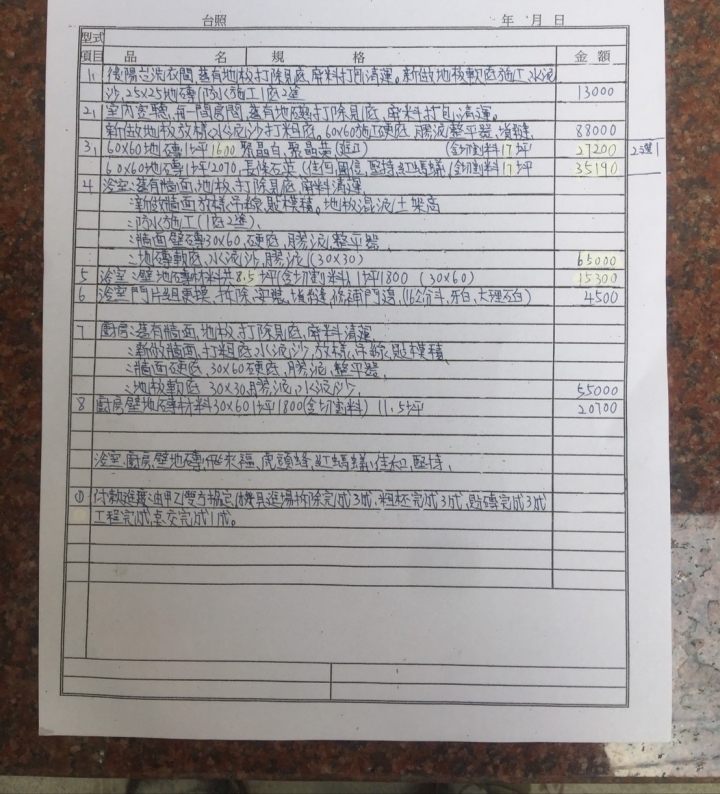 台照 年 月 日
型式
項目 品 名 規 格 金 額
1. 後陽台洗衣間,舊有地板打除見底,廢料打包清運。新做地板軟底施工水泥
沙,25x25地磚(防水施工1底2塗 13000
2. 室內客聽,每一間房間,舊有地磚打除見底,廢料打包,清運。
新做地板放樣,水泥沙打粗底。60x60施工硬底,膠泥,整平器,填縫, 88000
3. 60x60地磚1坪1600 聚晶白,聚晶黃(冠刀) (含切割料17坪) 27200 2選1
60x60地磚1坪2070, (佳和,國信,堅持,紅螞蟻,(含切割料17坪 35190
4 浴室:舊有牆面,地板,打除見底,廢料清運,
:新做牆面放樣,吊線,貼模積。地板混泥土架高
:防水施工(1底2塗),
:牆面壁磚30x60,硬底,膠泥,整平器,
:地磚軟底,水泥沙,膠泥,(30x30) 65000
5 浴室:壁地磚材料共8.5坪(含切割料),1坪1800 (30x60) 15300
6 浴室門片組更換,拆除,安裝,填縫,修補門邊,(牙白,大理石白) 4500
7 廚房:舊有牆面,地板,打除見底,廢料清運,
:新做牆面,打粗底,水泥沙,放樣,吊線,貼模積
:牆面硬底,30x60硬底,膠泥,整平器,
:地板軟底 30x30,膠泥,水泥沙, 55000
8 廚房壁地磚材料30x60 1坪1800(含切割料) 11.5坪 20700
浴室,廚房,壁地磚,飛來福,虎頭蜂,紅螞蟻,佳和,堅持,
① 付款進度:由甲乙雙方協定,機具進場拆除完成3成,粗胚完成3成,貼磚完成3成
工程完成,點交完成1成。